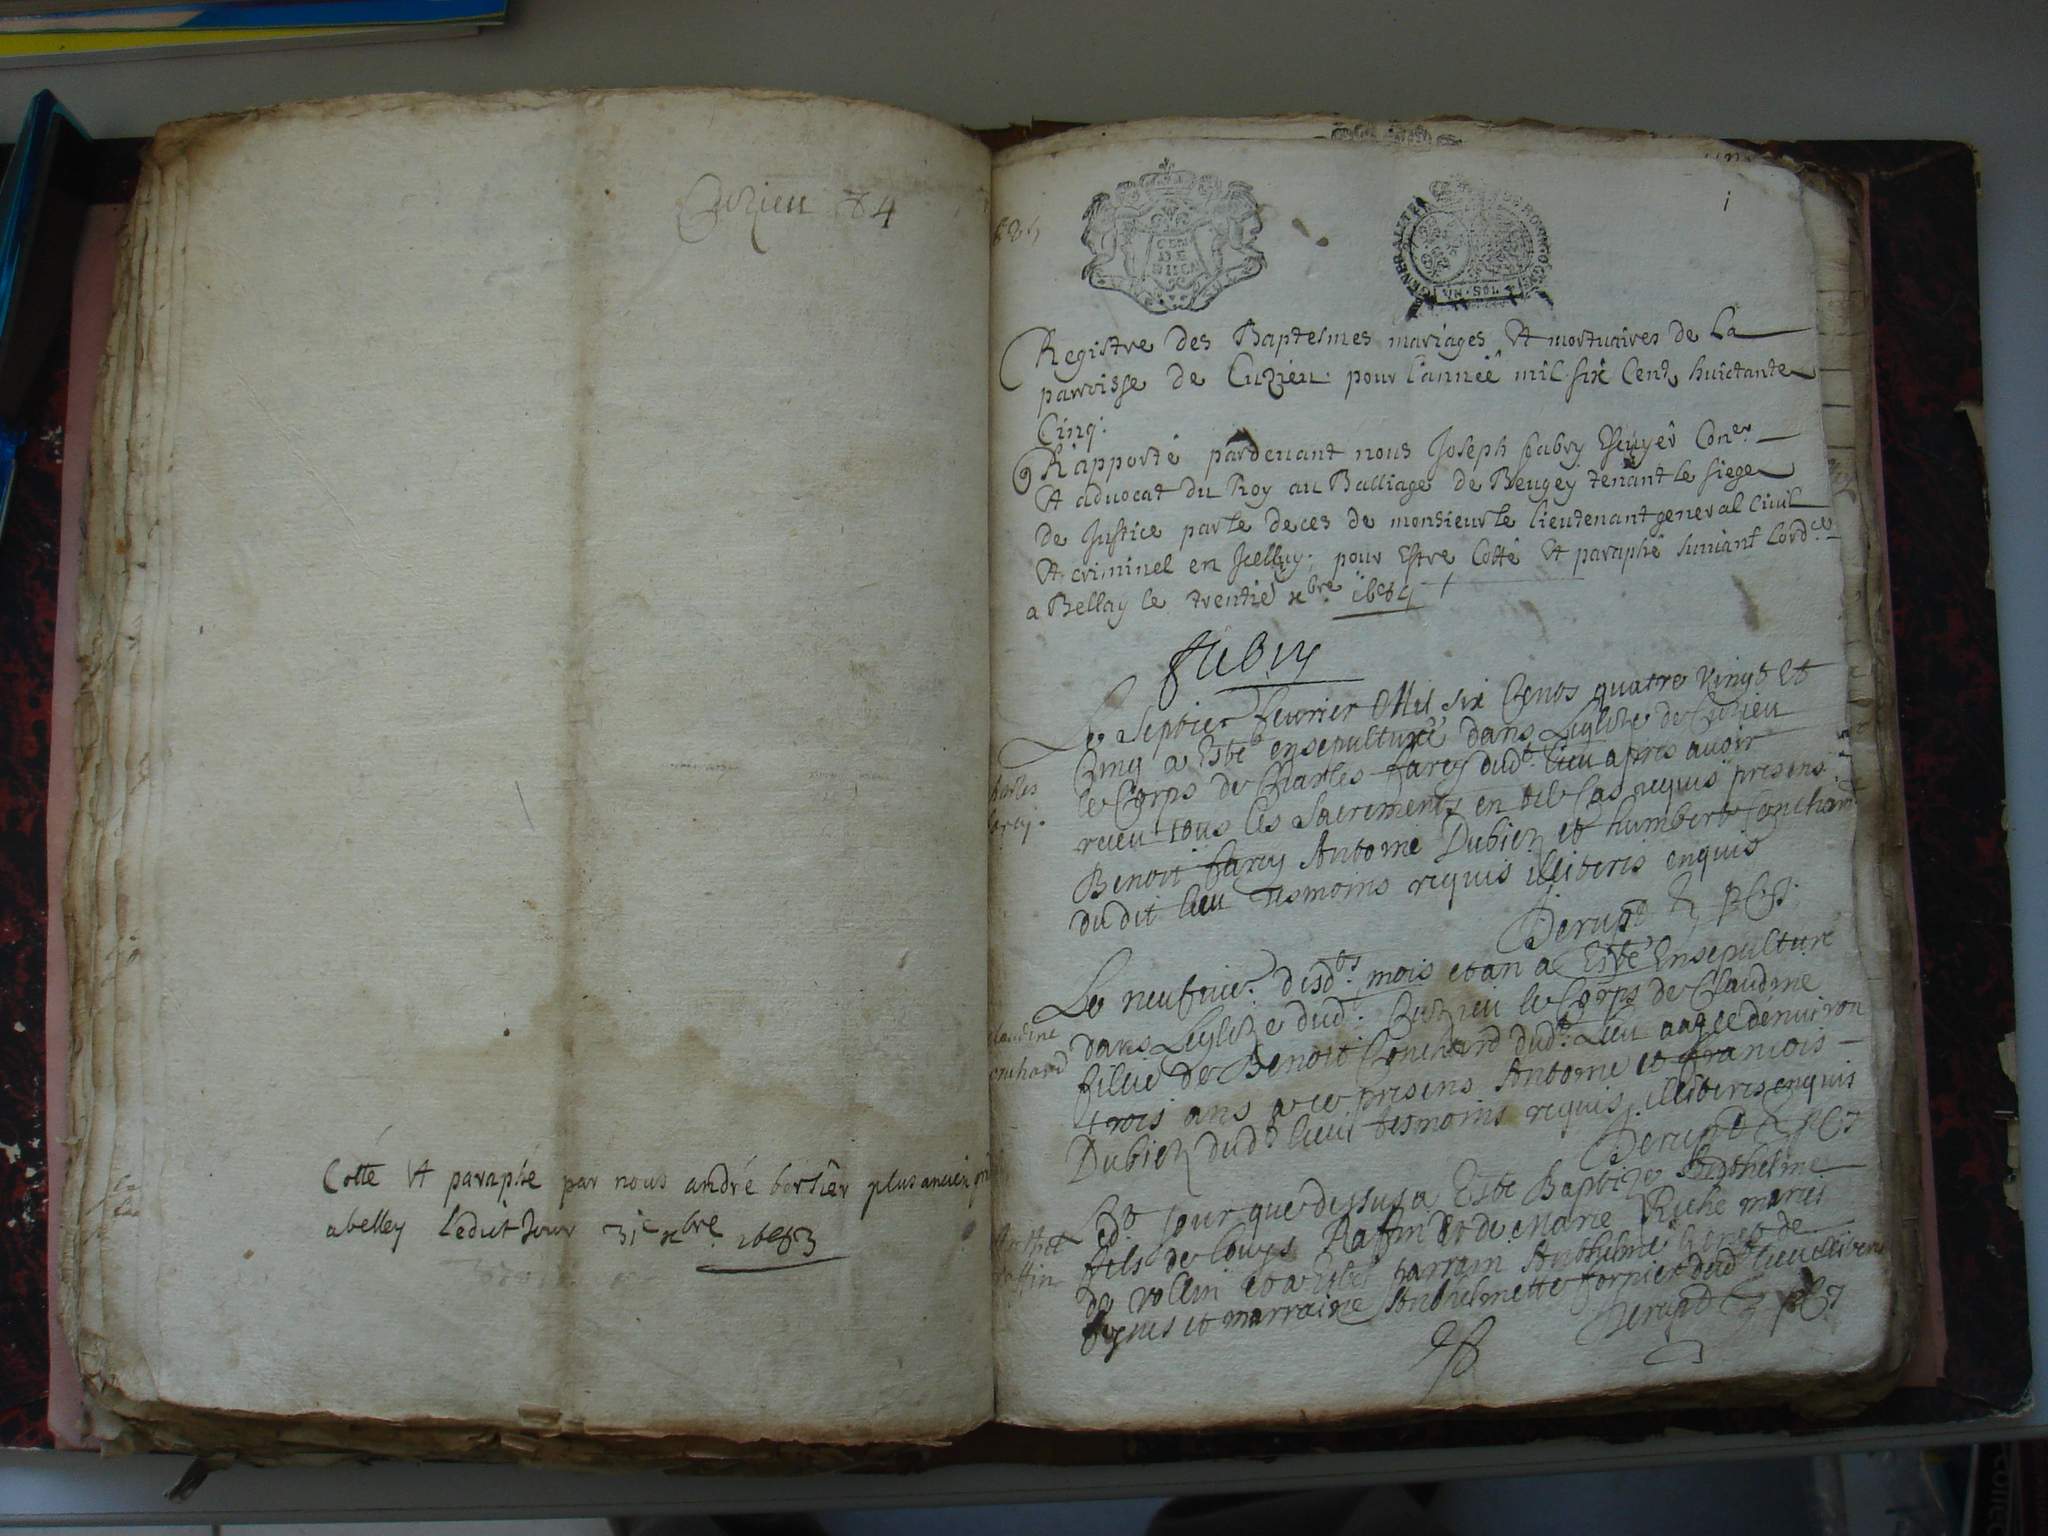 Cuzieu 84
Cotté et paraphé par nous andré borsier plus ancien
a belley ledit Jour 31e xbre 1683
1685
GEN
DE
VN SOL
i
Registre des Baptesmes mariages et mortuaires de La
parroisse de Cuzieu pour l'année mil six Cent huictante
Cinq.
Rapporté pardeuant nous Joseph fabry Escuyer Coner
et aduocat du Roy au Balliage de Beugey tenant le siege
de Justice par le deces de monsieur le lieutenant general Ciuil
et criminel en Icelluy, pour Estre Cotté et paraphé suiuant Lordce
a Bellay le trentie xbre 1684
fabry
Le Septier feurier Mil six Cents quatre vingt et
Cinq a Esté ensepulturé dans Leglize de Cuzieu
le Corps de Charles farcy dudt lieu apres auoir
receu tous les Sacrements en tel Cas requis presens
Benoit farcy Antoine Dubiez et humbert Couchard
dudit lieu tesmoins requis illiteris enquis
Charles
farcy.
Derupt
Le neufuie. desdts mois et an a Esté Ensepulturé
dans Leglize dudt Cuzieu le Corps de Claudine
fille de Benoit Couchard dudt Lieu aagée denuiron
trois ans a ce presens Antoine et francois
Dubiez dudt lieu tesmoins requis illiteris enquis
Claudine
Couchard
Derupt
Ledt Jour que dessus a Esté Baptizé Anthelme
fils de Louys Raffin et de Marie Riche mariés
de rollin et a esté parrain Anthelme de
et marraine Anthelmette fornier dudt lieu
Raffin
Derupt